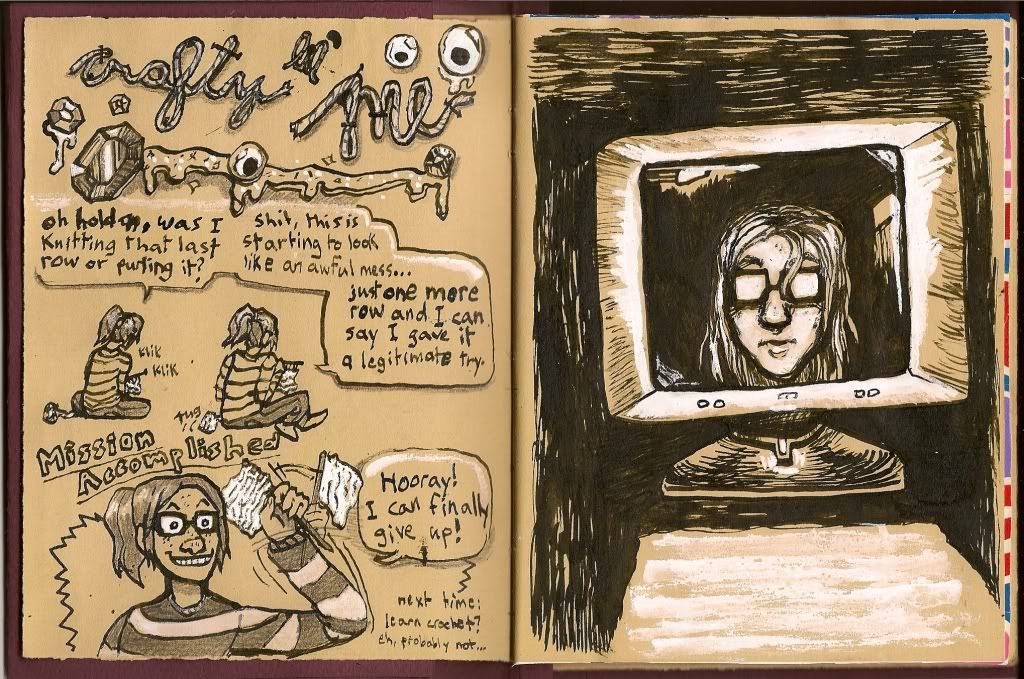 crafty lil' me
oh hold on, was I
knitting that last
row or purling it?
shit, this is
starting to look
like an awful mess...
just one more
row and I can
say I gave it
a legitimate try.
klik
klik
tug
Mission
Accomplished
Hooray!
I can finally
give up!
next time:
learn crochet?
eh, probably not...